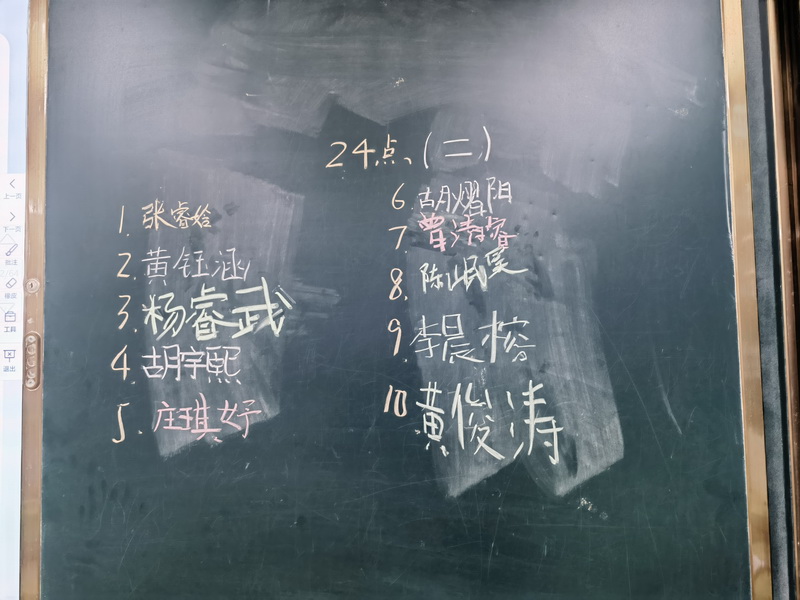 24点、(二)
1. 张睿姶
2. 黄钰涵
3. 杨睿武
4. 胡宇熙
5. 庄琪好
6. 胡熠阳
7. 曾清睿
8. 陈岷昊
9. 李晨榕
10 黄俊涛
上一页
下一页
批注
擦除
工具
退出